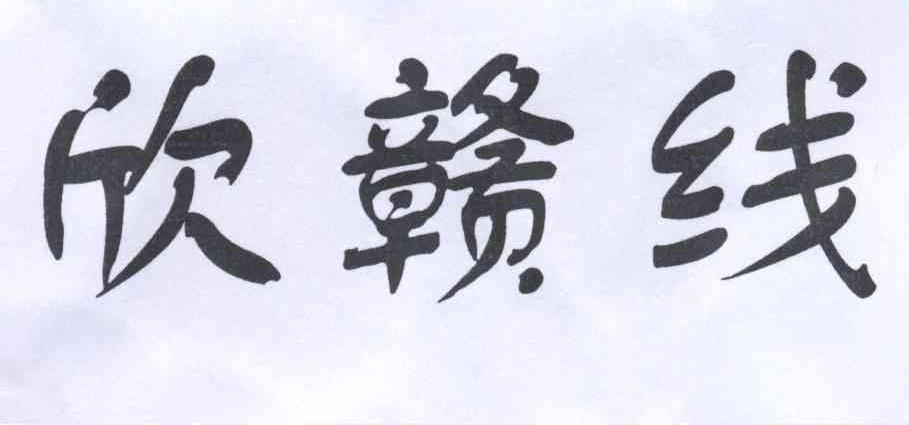 欣赣线